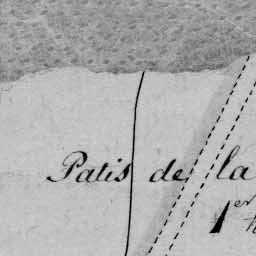 Patis de la
1er